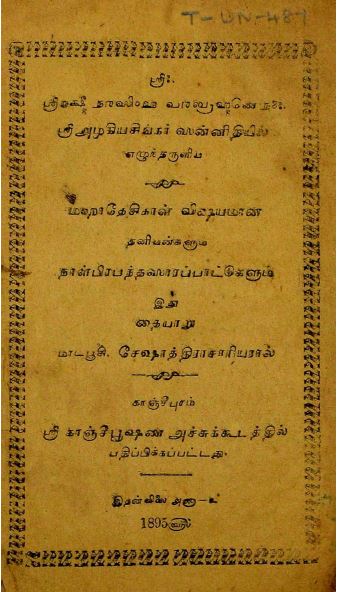 T-UN-487
ஸ்ரீ:.
ஸ்ரீலக்ஷ்மீ நரஸிம்ஹ பரப்ரஹ்மணே நம:.
ஸ்ரீ அழகியசிங்கர் ஸன்னிதியில்
எழுந்தருளிய
மஹாதேசிகன் விஷயமான
தனியன்களும்
நாள்பிரபந்தஸாரப்பாட்டுகளும்
இஃது
தையாறு
மாடபூசி. சேஷாத்திராசாரியரால்
காஞ்சீபுரம்
ஸ்ரீ காஞ்சீபூஷண அச்சுக்கூடத்தில்
பதிப்பிக்கப்பட்டது.
இதன்விலை அணா-
1895௵